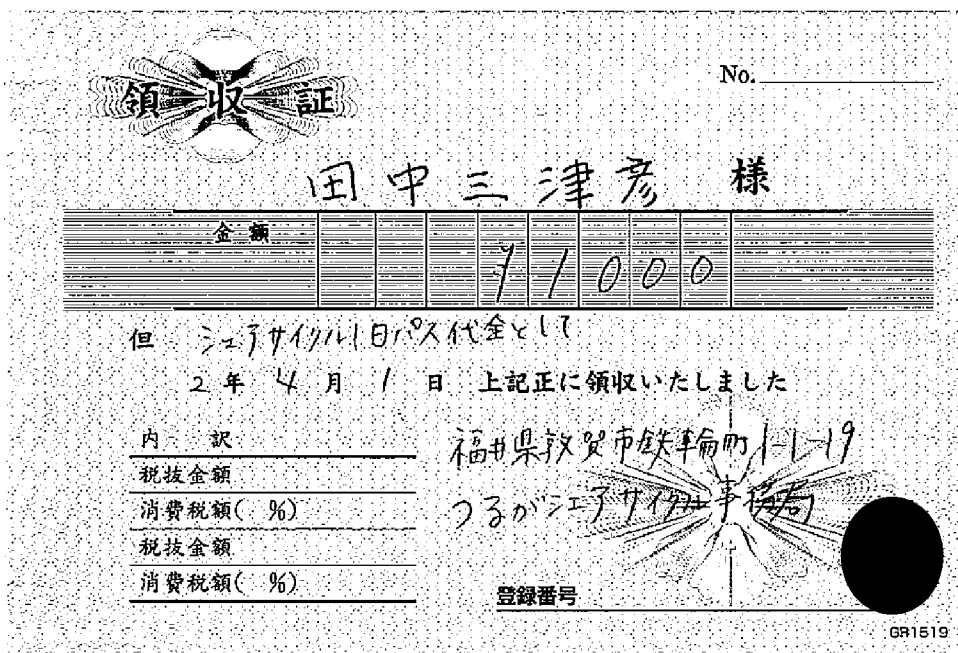 領収証
No.
田中三津彦 様
金額 ¥1000
但 シェアサイクル1日パス代金として
2年 4月 1日 上記正に領収いたしました
内 訳
税抜金額
消費税額( %)
税抜金額
消費税額( %)
福井県敦賀市鉄輪町1-1-19
つるがシェアサイクル事務局
登録番号
GR1519